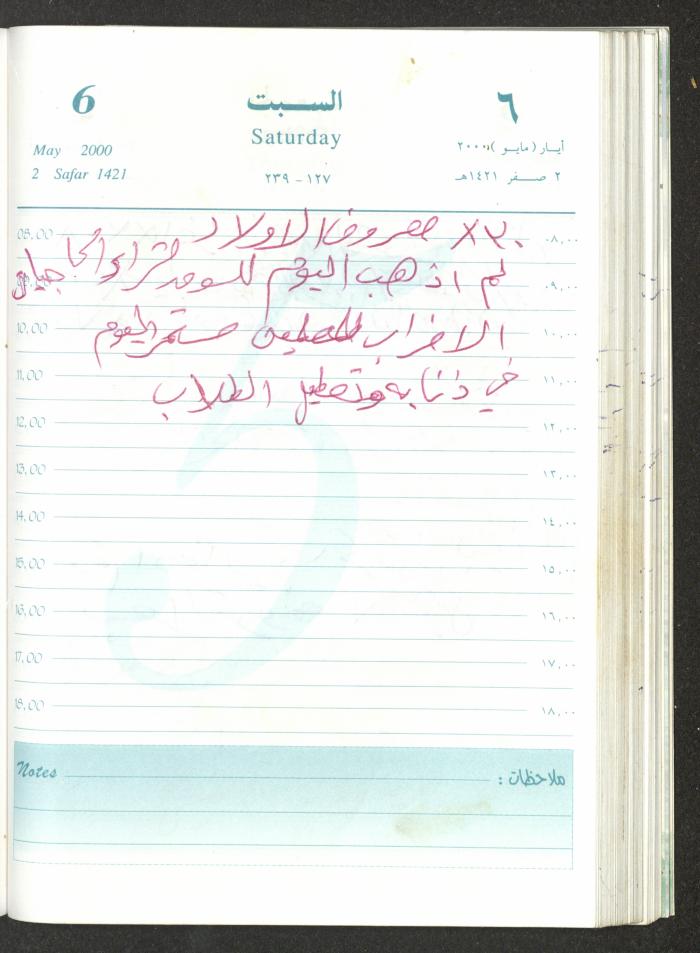 6
السبت
٦
Saturday
May 2000
أيار (مايو) ٢٠٠٠
2 Safar 1421
١٢٧ - ٢٣٩
٢ صفر ١٤٢١هـ
٣٠ X مصروف الاولاد
08,00 ٠٨,٠٠
لم اذهب اليوم للسوق لشراء الحاجيات
٠٩,٠٠
10,00 ١٠,٠٠
الاضراب للمعلمين مستمر اليوم
11,00 ١١,٠٠
في ذنابه وتعطيل الطلاب
12,00 ١٢,٠٠
13,00 ١٣,٠٠
14,00 ١٤,٠٠
15,00 ١٥,٠٠
16,00 ١٦,٠٠
17,00 ١٧,٠٠
18,00 ١٨,٠٠
Notes ملاحظات :